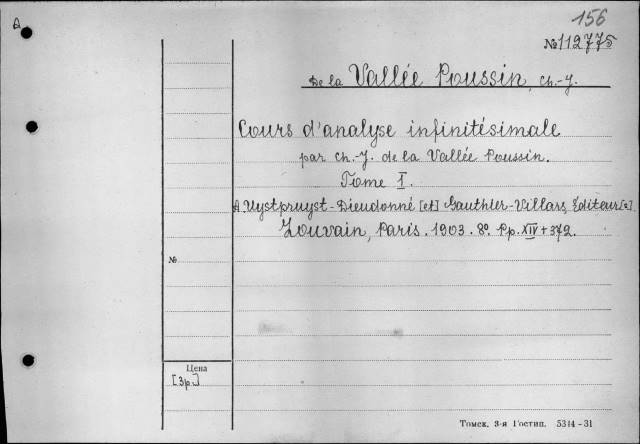 A
156
№112775
De la Vallée Poussin, Ch.-J.
Cours d'analyse infinitésimale
par Ch.-J. de la Vallée Poussin.
Tome I.
A Uystpruyst-Dieudonné [et] Gauthier-Villars, Éditeur[s]
Louvain, Paris. 1903. 8º. Pp. XIV + 372.
№
Цена
[3р.]
Томск. 3-я Гостип. 5314-31